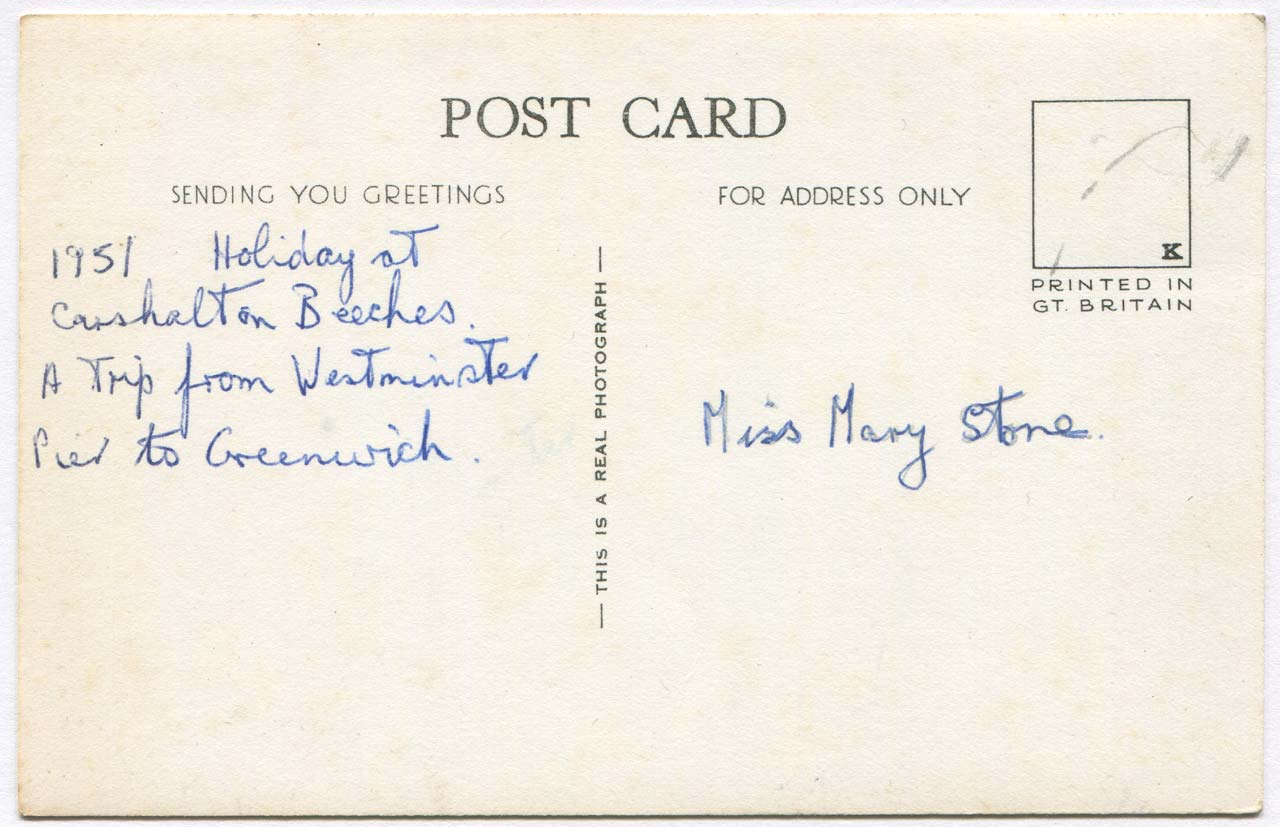 POST CARD
SENDING YOU GREETINGS
FOR ADDRESS ONLY
K
PRINTED IN
GT. BRITAIN
1951 Holiday at
Carshalton Beeches.
A Trip from Westminster
Pier to Greenwich.
— THIS IS A REAL PHOTOGRAPH —
Miss Mary Stone.